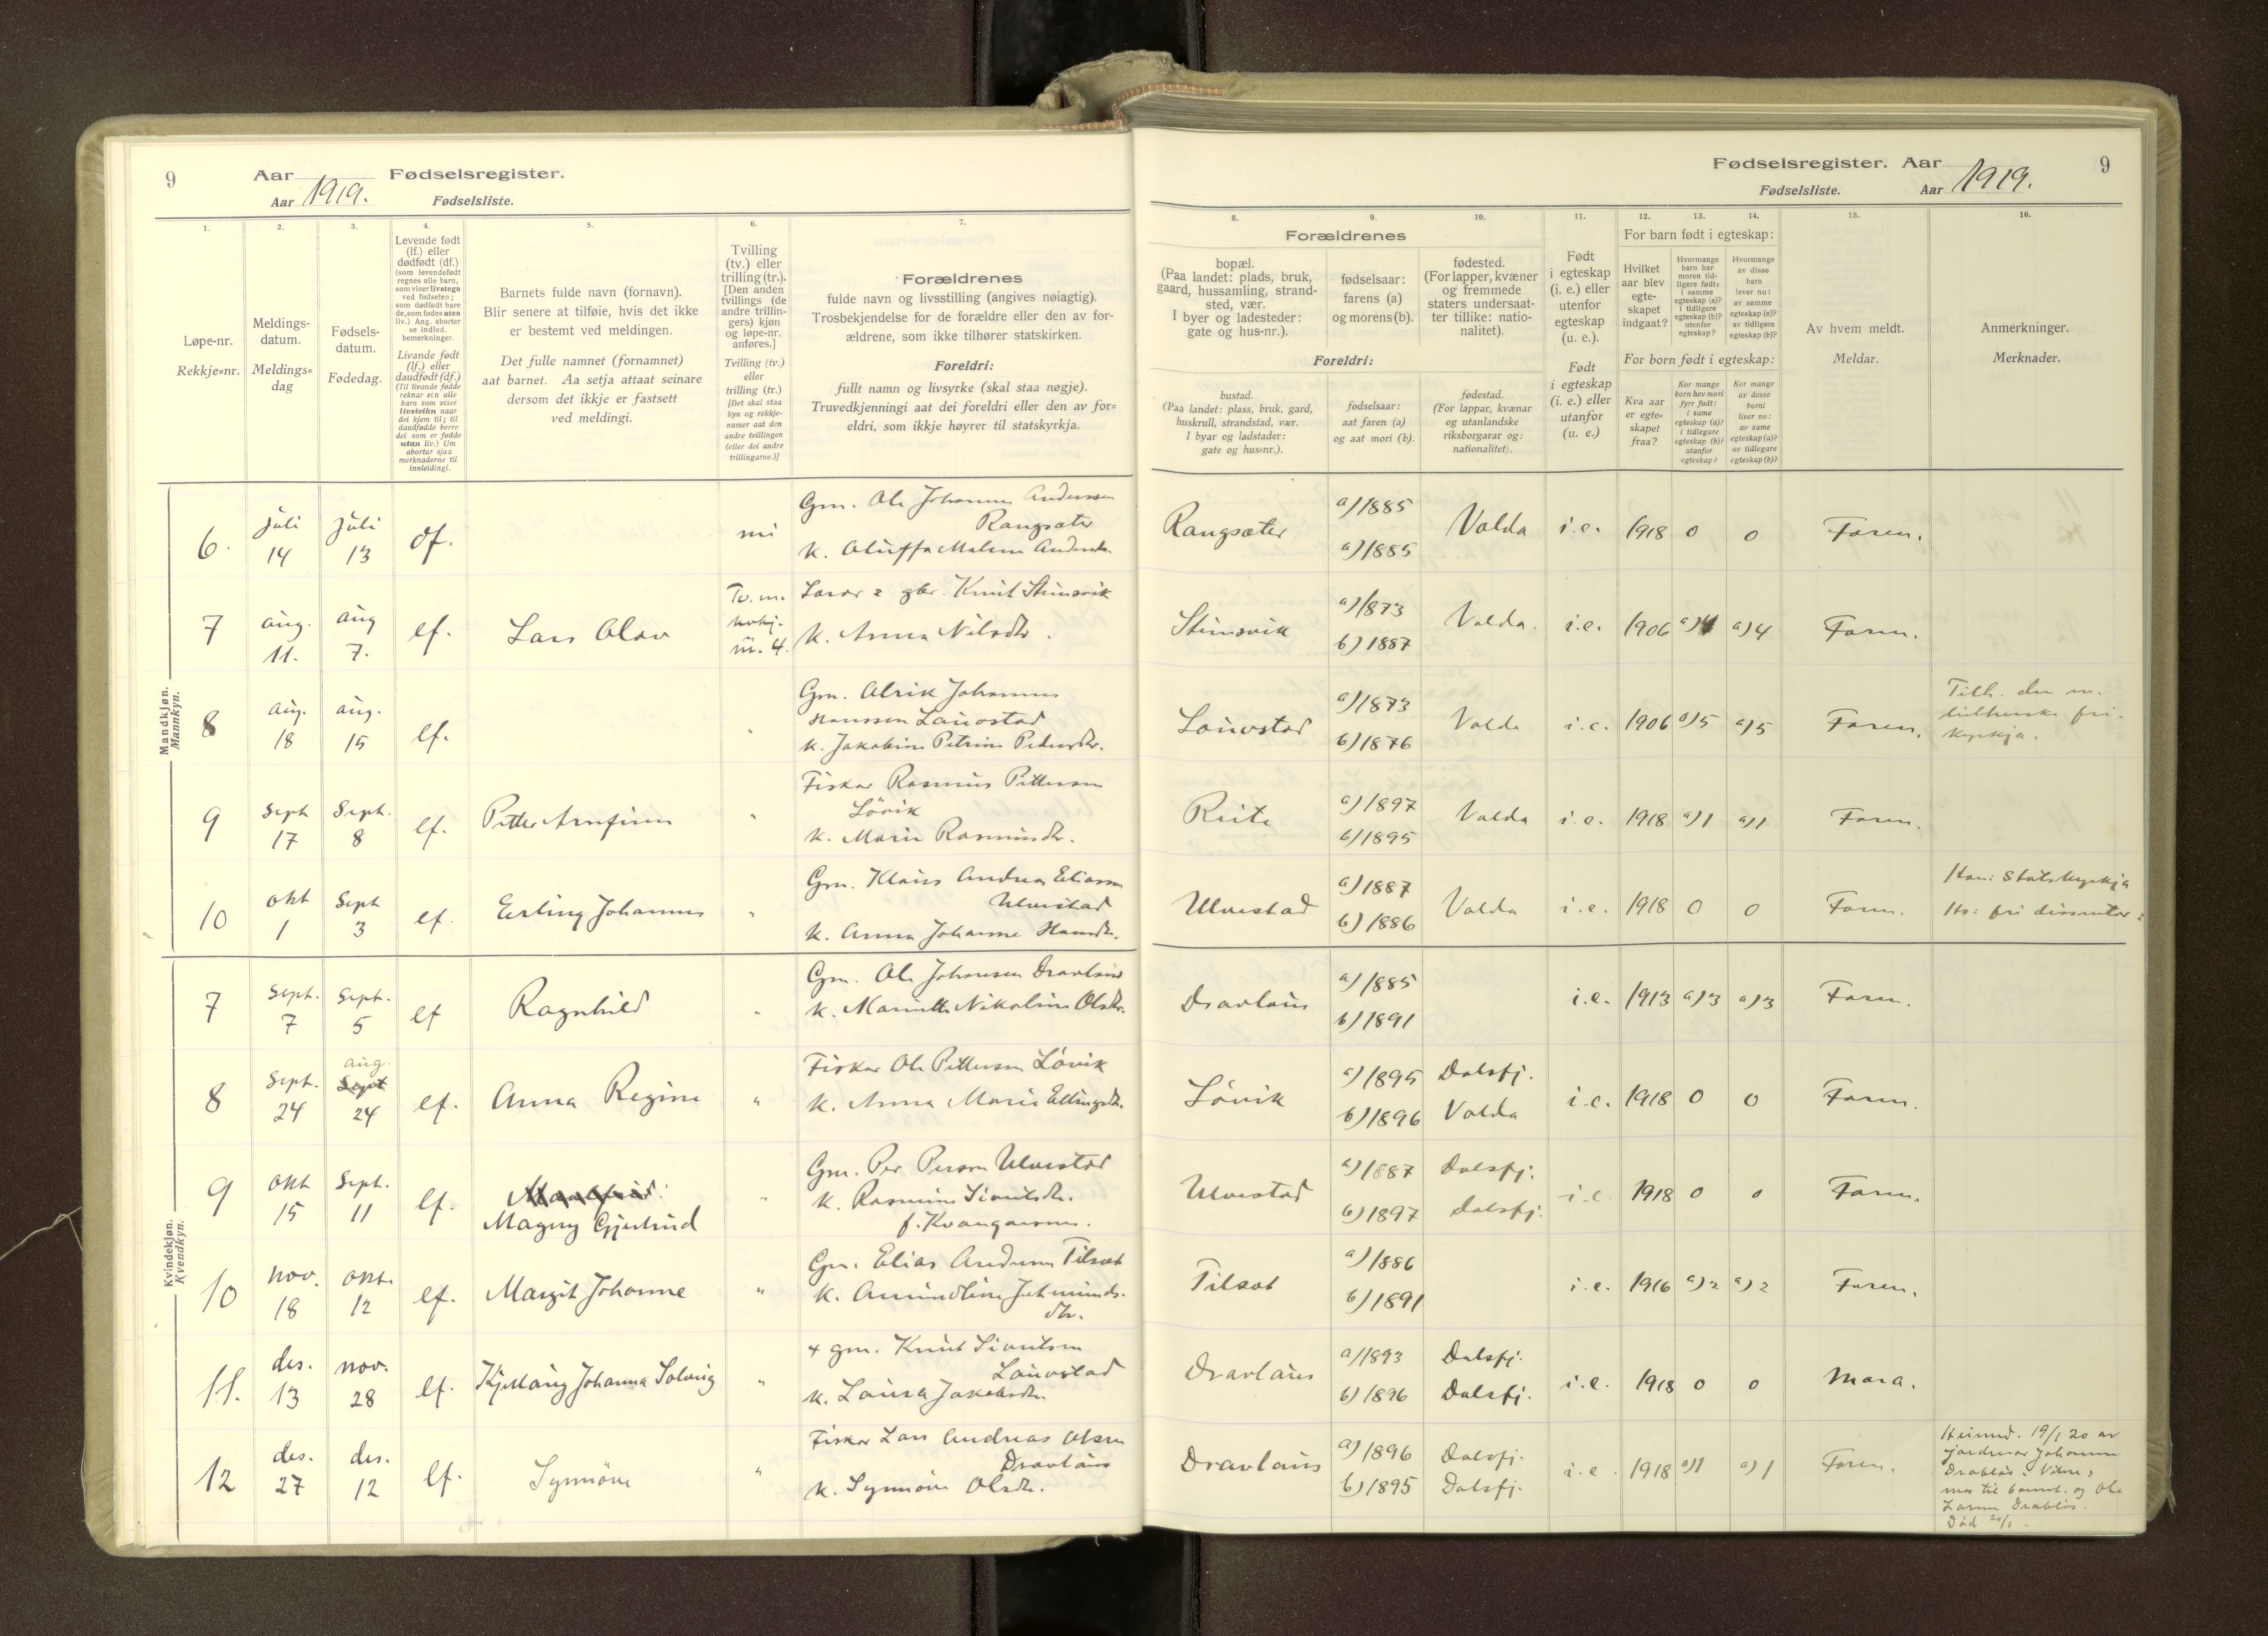 9 Aar 1919. Fødselsregister.
Aar Fødselsliste.
1. 2. 3. 4. 5. 6. 7.
Løpe-nr.
Rekkje=nr.
Meldings-
datum.
Meldings=
dag
Fødsels-
datum.
Fødedag.
Levende født
(lf.) eller
dødfødt (df.)
(som levendefødt
regnes alle barn,
som viser livstegn
ved fødselen;
som dødfødt bare
de, som fødes uten
liv.) Ang. aborter
se indled.
bemerkninger.
Livande født
(lf.) eller
daudfødt (df.)
(Til livande fødde
reknar ein alle
barn som viser
livsteikn naar
dei kjem til; til
daudfødde berre
dei som er fødde
utan liv.) Um
abortar sjaa
merknaderne til
innleidingi.
Barnets fulde navn (fornavn).
Blir senere at tilføie, hvis det ikke
er bestemt ved meldingen.
Det fulle namnet (fornamnet)
aat barnet. Aa setja attaat seinare
dersom det ikkje er fastsett
ved meldingi.
Tvilling
(tv.) eller
trilling (tr.).
[Den anden
tvillings (de
andre trillin-
gers) kjøn
og løpe-nr.
anføres.]
Tvilling (tv.)
eller
trilling (tr.)
[Det skal staa
kyn og rekkje-
numer aat den
andre trillingen
(eller dei andre
trillingarne.)]
Forældrenes
fulde navn og livsstilling (angives nøiagtig).
Trosbekjendelse for de forældre eller den av for-
ældrene, som ikke tilhører statskirken.
Foreldri:
fullt namn og livsyrke (skal staa nøgje).
Truvedkjenningi aat dei foreldri eller den av for=
eldri, som ikkje høyrer til statskyrkja.
Mandkjøn.
Mannkyn.
6. juli 14 juli 13 df. Gm. Ole Johannes Anderssen
Rangsæter
K. Oluffa Malene Andersdr.
7 aug. 11. aug 7. lf. Lars Olav Tv. m.
nr. 4. Lærar & gbr. Knut Steinsvik
K. Anna Nilsdtr.
8 aug. 18 aug. 15 lf. Gm. Alrik Johannes
Hanssen Lauvstad
K. Jakobine Petrine Pedersdtr.
9 Sept 17 Sept. 8 lf. Petter Arnfinn " Fiskar Rasmus Pettersen
Lövik
K. Marie Rasmusdtr.
10 okt 1 Sept 3 lf. Erling Johannes " Gm. Klaus Andreas Eliassen
Ulvestad
K. Anna Johanne Hansdtr.
Kvindekjøn.
Kvendkyn.
7 Sept. 7 Sept. 5 lf Ragnhild " Gm. Ole Johansen Dravlaus
K. Marientte Nikoline Olsdtr.
8 Sept. 24 aug. Sept 24 lf. Anna Regine " Fiskar Ole Pettersen Lövik
K. Anna Marie Ellingsdtr.
9 okt 15 Sept. 11 lf. Magny Gjertrud " Gm. Per Persen Ulvestad
K. Rasmine Sivertsdtr.
f. Kvangarsnes.
10 nov. 18 okt. 12 lf. Margit Johanne " Gm. Elias Andersen Tilset
K. Amundine Jetmunds-
dtr.
11. des. 13 nov. 28 lf. Kjellaug Johanna Solveig " + gm. Knut Sivertsen
Lauvstad
K. Laura Jakobsdtr.
12 des. 27 des. 12 lf. Synnöve " Fiskar Lars Andreas Olsen
Dravlaus
K. Synnöve Olsdtr.
Fødselsregister. Aar 1919. 9
Fødselsliste. Aar
8. 9. 10. 11. 12. 13. 14. 15. 16.
Forældrenes
bopæl.
(Paa landet: plads, bruk,
gaard, hussamling, strand-
sted, vær.
I byer og ladesteder:
gate og hus-nr.).
fødselsaar:
farens (a)
og morens (b).
fødested.
(For lapper, kvæner
og fremmede
staters undersaat-
ter tillike: natio-
nalitet).
Foreldri:
bustad.
(Paa landet: plass, bruk, gard,
huskrull, strandstad, vær.
I byar og ladstader:
gate og hus=nr.).
fødselsaar:
aat faren (a)
og aat mori (b).
fødestad.
(For lappar, kvænar
og utanlandske
riksborgarar og:
nationalitet).
Født
i egteskap
(i. e.) eller
utenfor
egteskap
(u. e.).
Født
i egteskap
(i. e.) eller
utanfor
egteskap
(u. e.)
For barn født i egteskap:
Hvilket
aar blev
egte-
skapet
indgaat?
Hvormange
barn har
moren tid-
ligere født:
i samme
egteskap (a)?
i tidligere
egteskap (b)?
utenfor
egteskap?
Hvormange
av disse
barn
lever nu:
av samme
egteskap (a)?
av tidligere
egteskap (b)?
For born født i egteskap:
Kva aar
er egte=
skapet
fraa?
Kor mange
born hev mori
fyrr født:
i same
egteskap (a)?
i tidlegare
egteskap (b)?
utanfor
egteskap?
Kor mange
av desse
borni
liver no:
av same
egteskap (a)?
av tidlegare
egteskap (b)?
Av hvem meldt.
Meldar.
Anmerkninger.
Merknader.
Rangsæter a) 1885 a) 1885 Volda i.e. 1918 0 0 Faren.
Steinsvik a) 1873 b) 1887 Volda. i.e. 1906 a) 4 a) 4 Faren.
Lauvstad a) 1873 b) 1876 Volda i.e. 1906 a) 5 a) 5 Faren. Tilh. den ev.
lutherske fri-
kyrkja.
Reite a) 1897 b) 1895 Volda i.e. 1918 a) 1 a) 1 Faren.
Ulvestad a) 1887 b) 1886 Volda i.e. 1918 0 0 Faren. Han: Statskyrkja
Ho: fri dissenter
Dravlaus a) 1885 b) 1891 i.e. 1913 a) 3 a) 3 Faren.
Lövik a) 1895 b) 1896 Dalsfj. Volda i.e. 1918 0 0 Faren.
Ulvestad a) 1887 b) 1897 Dalsfj. Dalsfj. i.e. 1918 0 0 Faren.
Tilset a) 1886 b) 1891 i.e. 1916 a) 2 a) 2 Faren.
Dravlaus a) 1893 b) 1896 Dalsfj. Dalsfj. i.e. 1918 0 0 Mora.
Dravlaus a) 1896 b) 1895 Dalsfj. Dalsfj. i.e. 1918 a) 1 a) 1 Faren. Heimed. 19/1 20 av
jordmor Johanne
Drabløs. Vitne:
mor til barnet. og Ole
Larsen Drabløs.
Död 20/1.